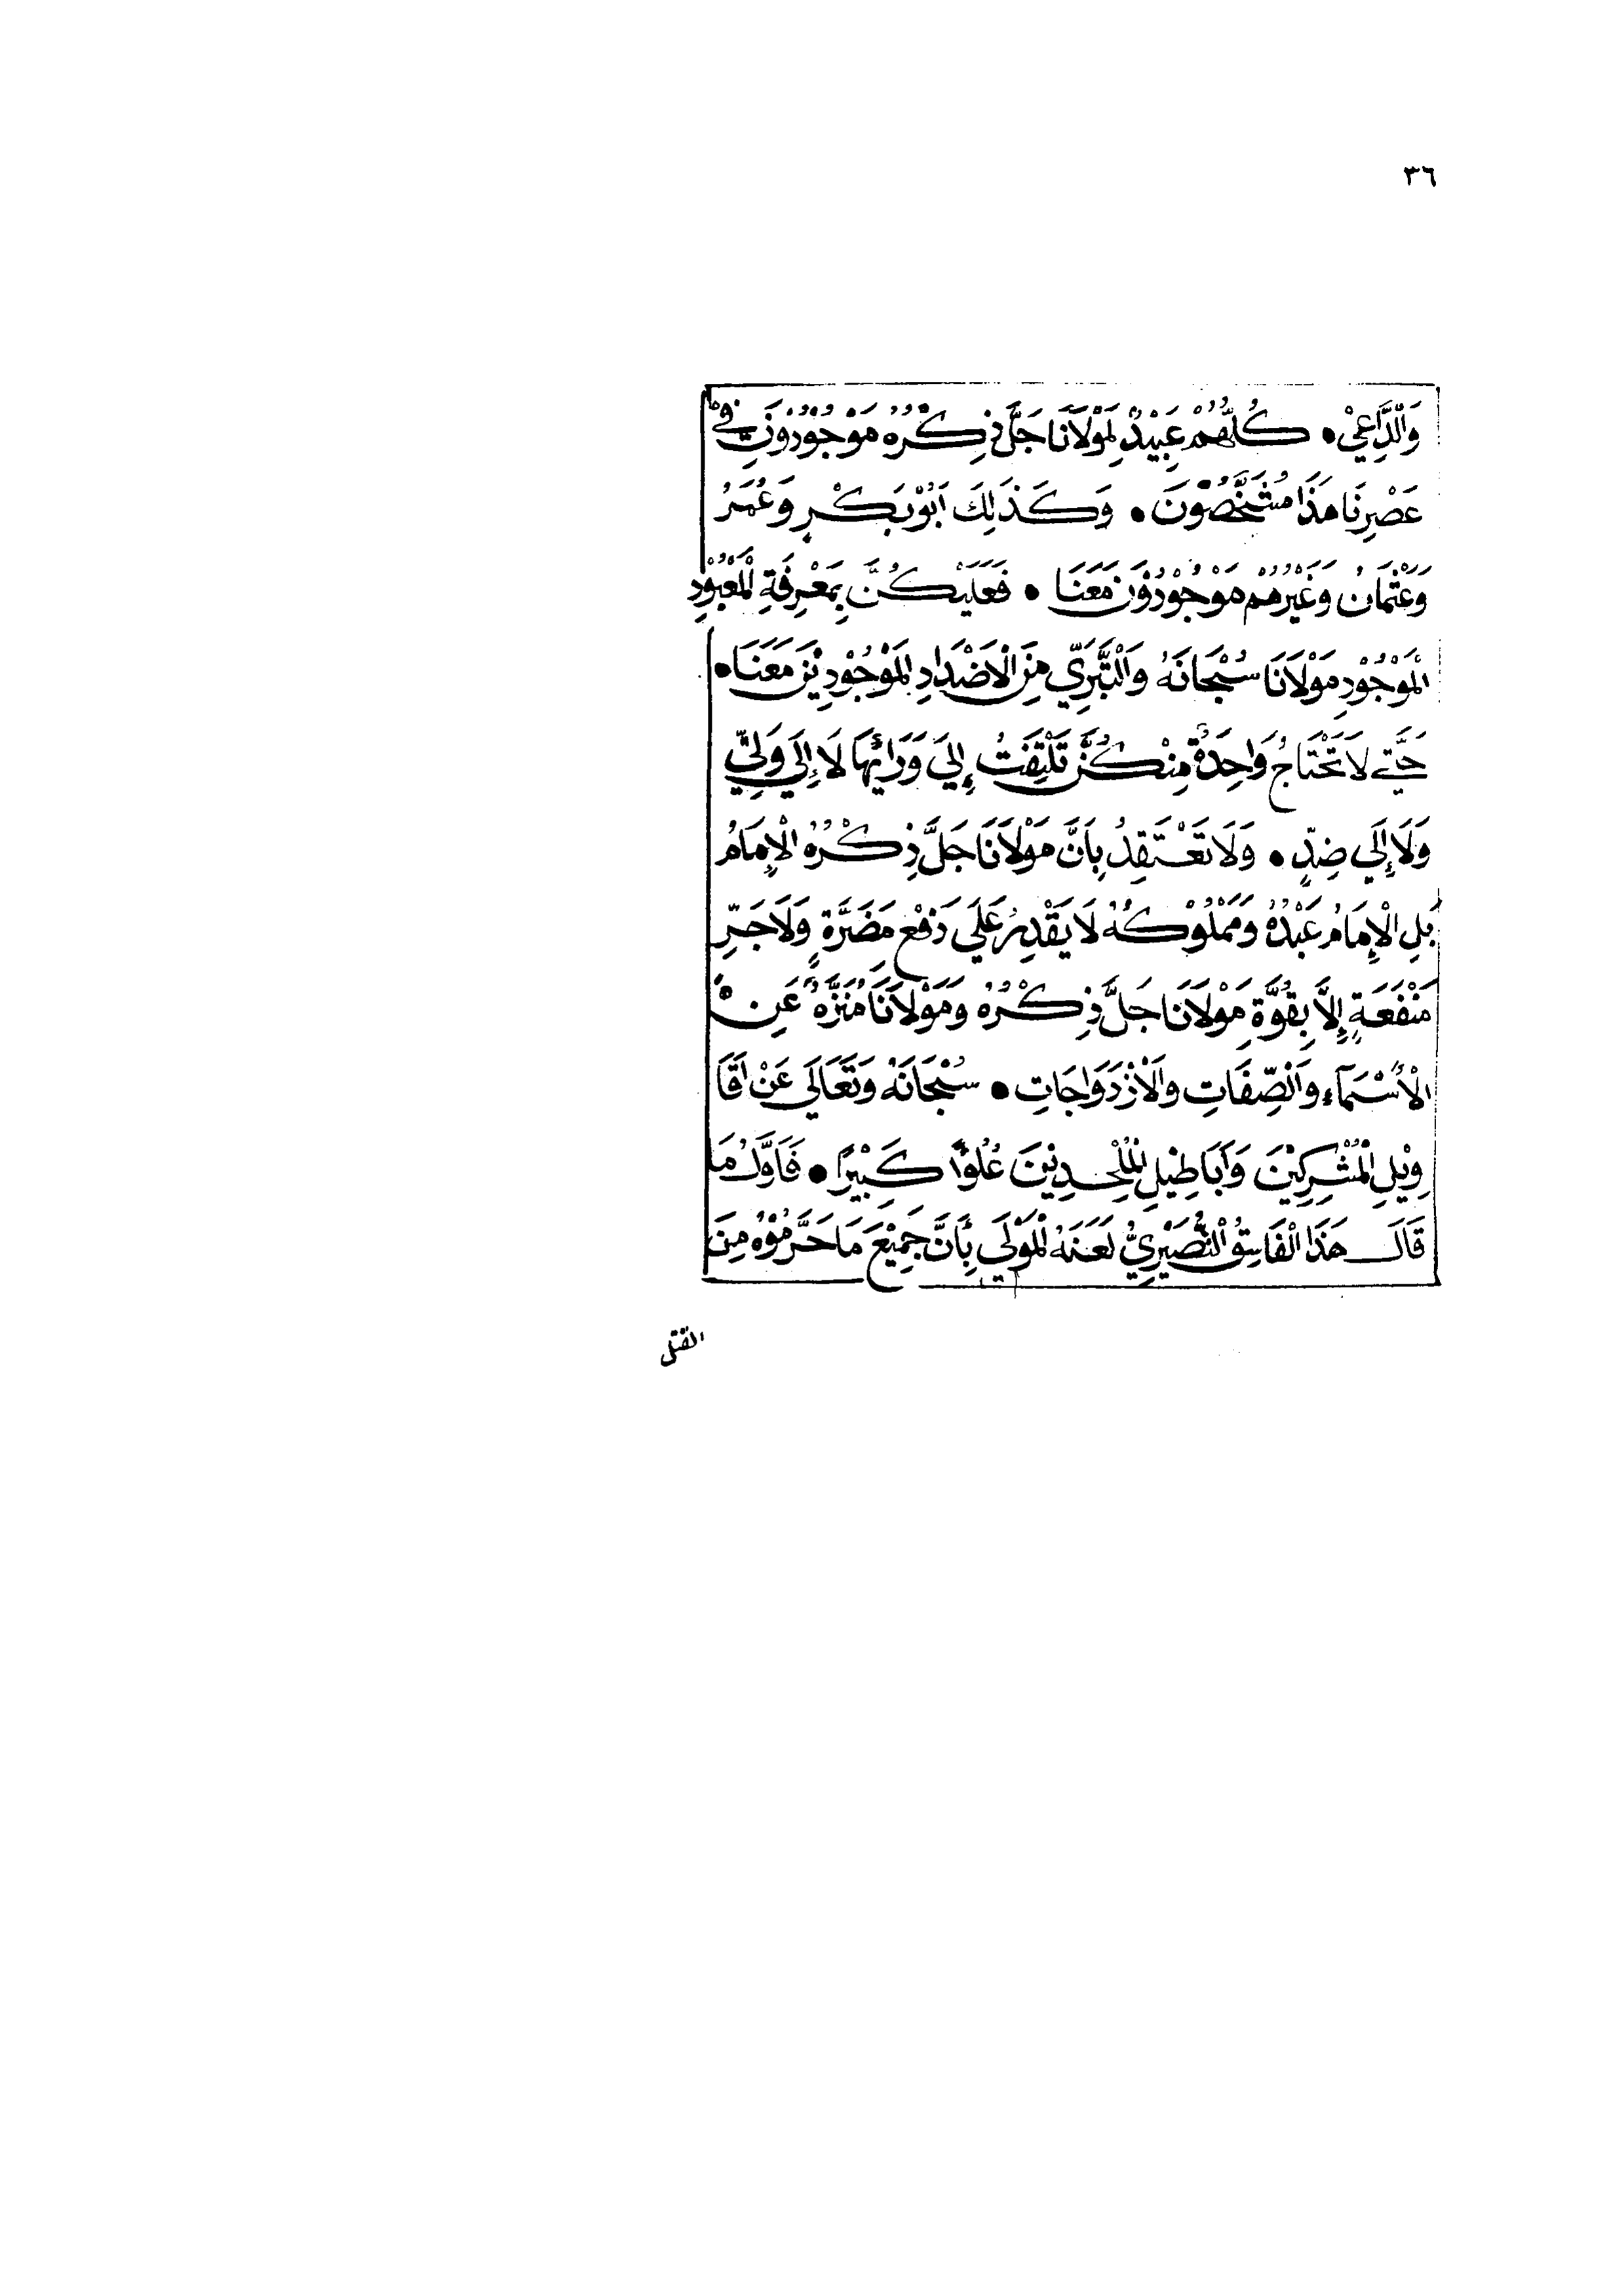 ٣٦
وَالْدَّاعِيْ • كُلُّهُمْ عَبِيْدٌ لِمَوْلَانَا جَلَّ ذِكْرُهُ مَوْجُوْدُوْنَ فِيْ
عَصْرِنَا هَذَا مُشَخَّصُوْنَ • وَكَذَلِكَ اَبُوْبَكْرٍ وَعُمَرُ
وَعُثْمَانُ وَغَيْرُهُمْ مَوْجُوْدُوْنَ مَعَنَا • فَعَلَيْكُنَّ بِمَعْرِفَةِ الْمَعْبُوْدِ
الْمَوْجُوْدِ مَوْلَانَا سُبْحَانَهُ وَالْتَّبَرِّي مِنَ الْاَضْدَادِ الْمَوْجُوْدِيْنَ مَعَنَا •
حَتَّي لَا تَحْتَاجُ وَاحِدَةٌ مِنْكُنَّ تَلْتَفِتُ إِلَيَ وَرَائِهَا لَا إِلَي وَلِيٍّ
وَلَا إِلَي ضِدٍّ • وَلَا تَعْتَقِدُ بِاَنَّ مَوْلَانَا جَلَّ ذِكْرُهُ الْإِمَامُ
بَلِ الْإِمَامُ عَبْدُهُ وَمَمْلُوْكُهُ لَا يَقْدِرُ عَلَي دَفْعِ مَضَرَّةٍ وَلَا جَرِّ
مَنْفَعَةٍ إِلَّا بِقُوَّةِ مَوْلَانَا جَلَّ ذِكْرُهُ وَمَوْلَانَا مُنَزَّهٌ عَنِ
الْأَسْمَآءِ وَالْصِّفَاتِ وَالْأَزْدَوَاجَاتِ • سُبْحَانَهُ وَتَعَالَي عَنْ اَقَا
وِيْلِ الْمُشْرِكِيْنَ وَاَبَاطِيْلِ الْمُلْحِدِيْنَ عُلُوًّا كَبِيْرًا • فَاَوَّلُ مَا
قَالَ هَذَا الْفَاسِقُ النُّصَيْرِيُّ لَعَنَهُ الْمَوْلَي بِأَنَّ جَمِيْعَ مَا حَرَّمُوْهُ مِنَ
القتل